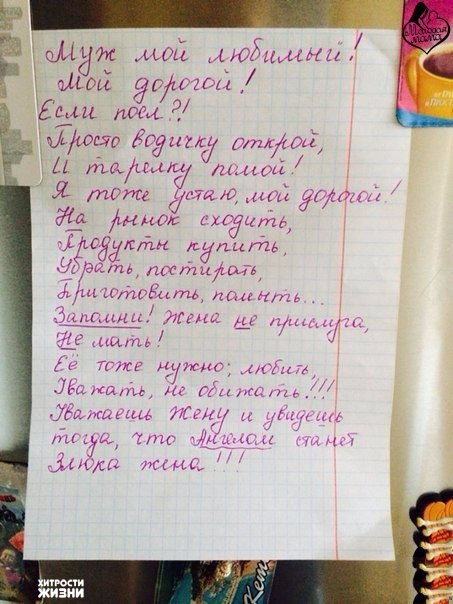 Молодая мама
Муж мой любимый!
Мой дорогой!
Если поел?!
Просто водичку открой,
И тарелку помой!
Я тоже устаю, мой дорогой!
На рынок сходить,
Продукты купить,
Убрать, постирать,
Приготовить, помыть...
Запомни! Жена не прислуга,
Не мать!
Её тоже нужно; любить,
Уважать, не обижать!!!
Уважаешь жену и увидешь
тогда, что Ангелом станет
Злюка жена!!!
ХИТРОСТИ
ЖИЗНИ
Кет